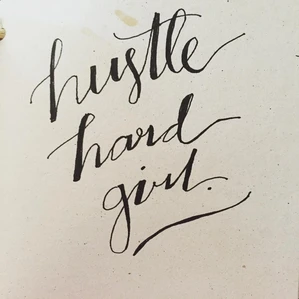 hustle
hard
girl.